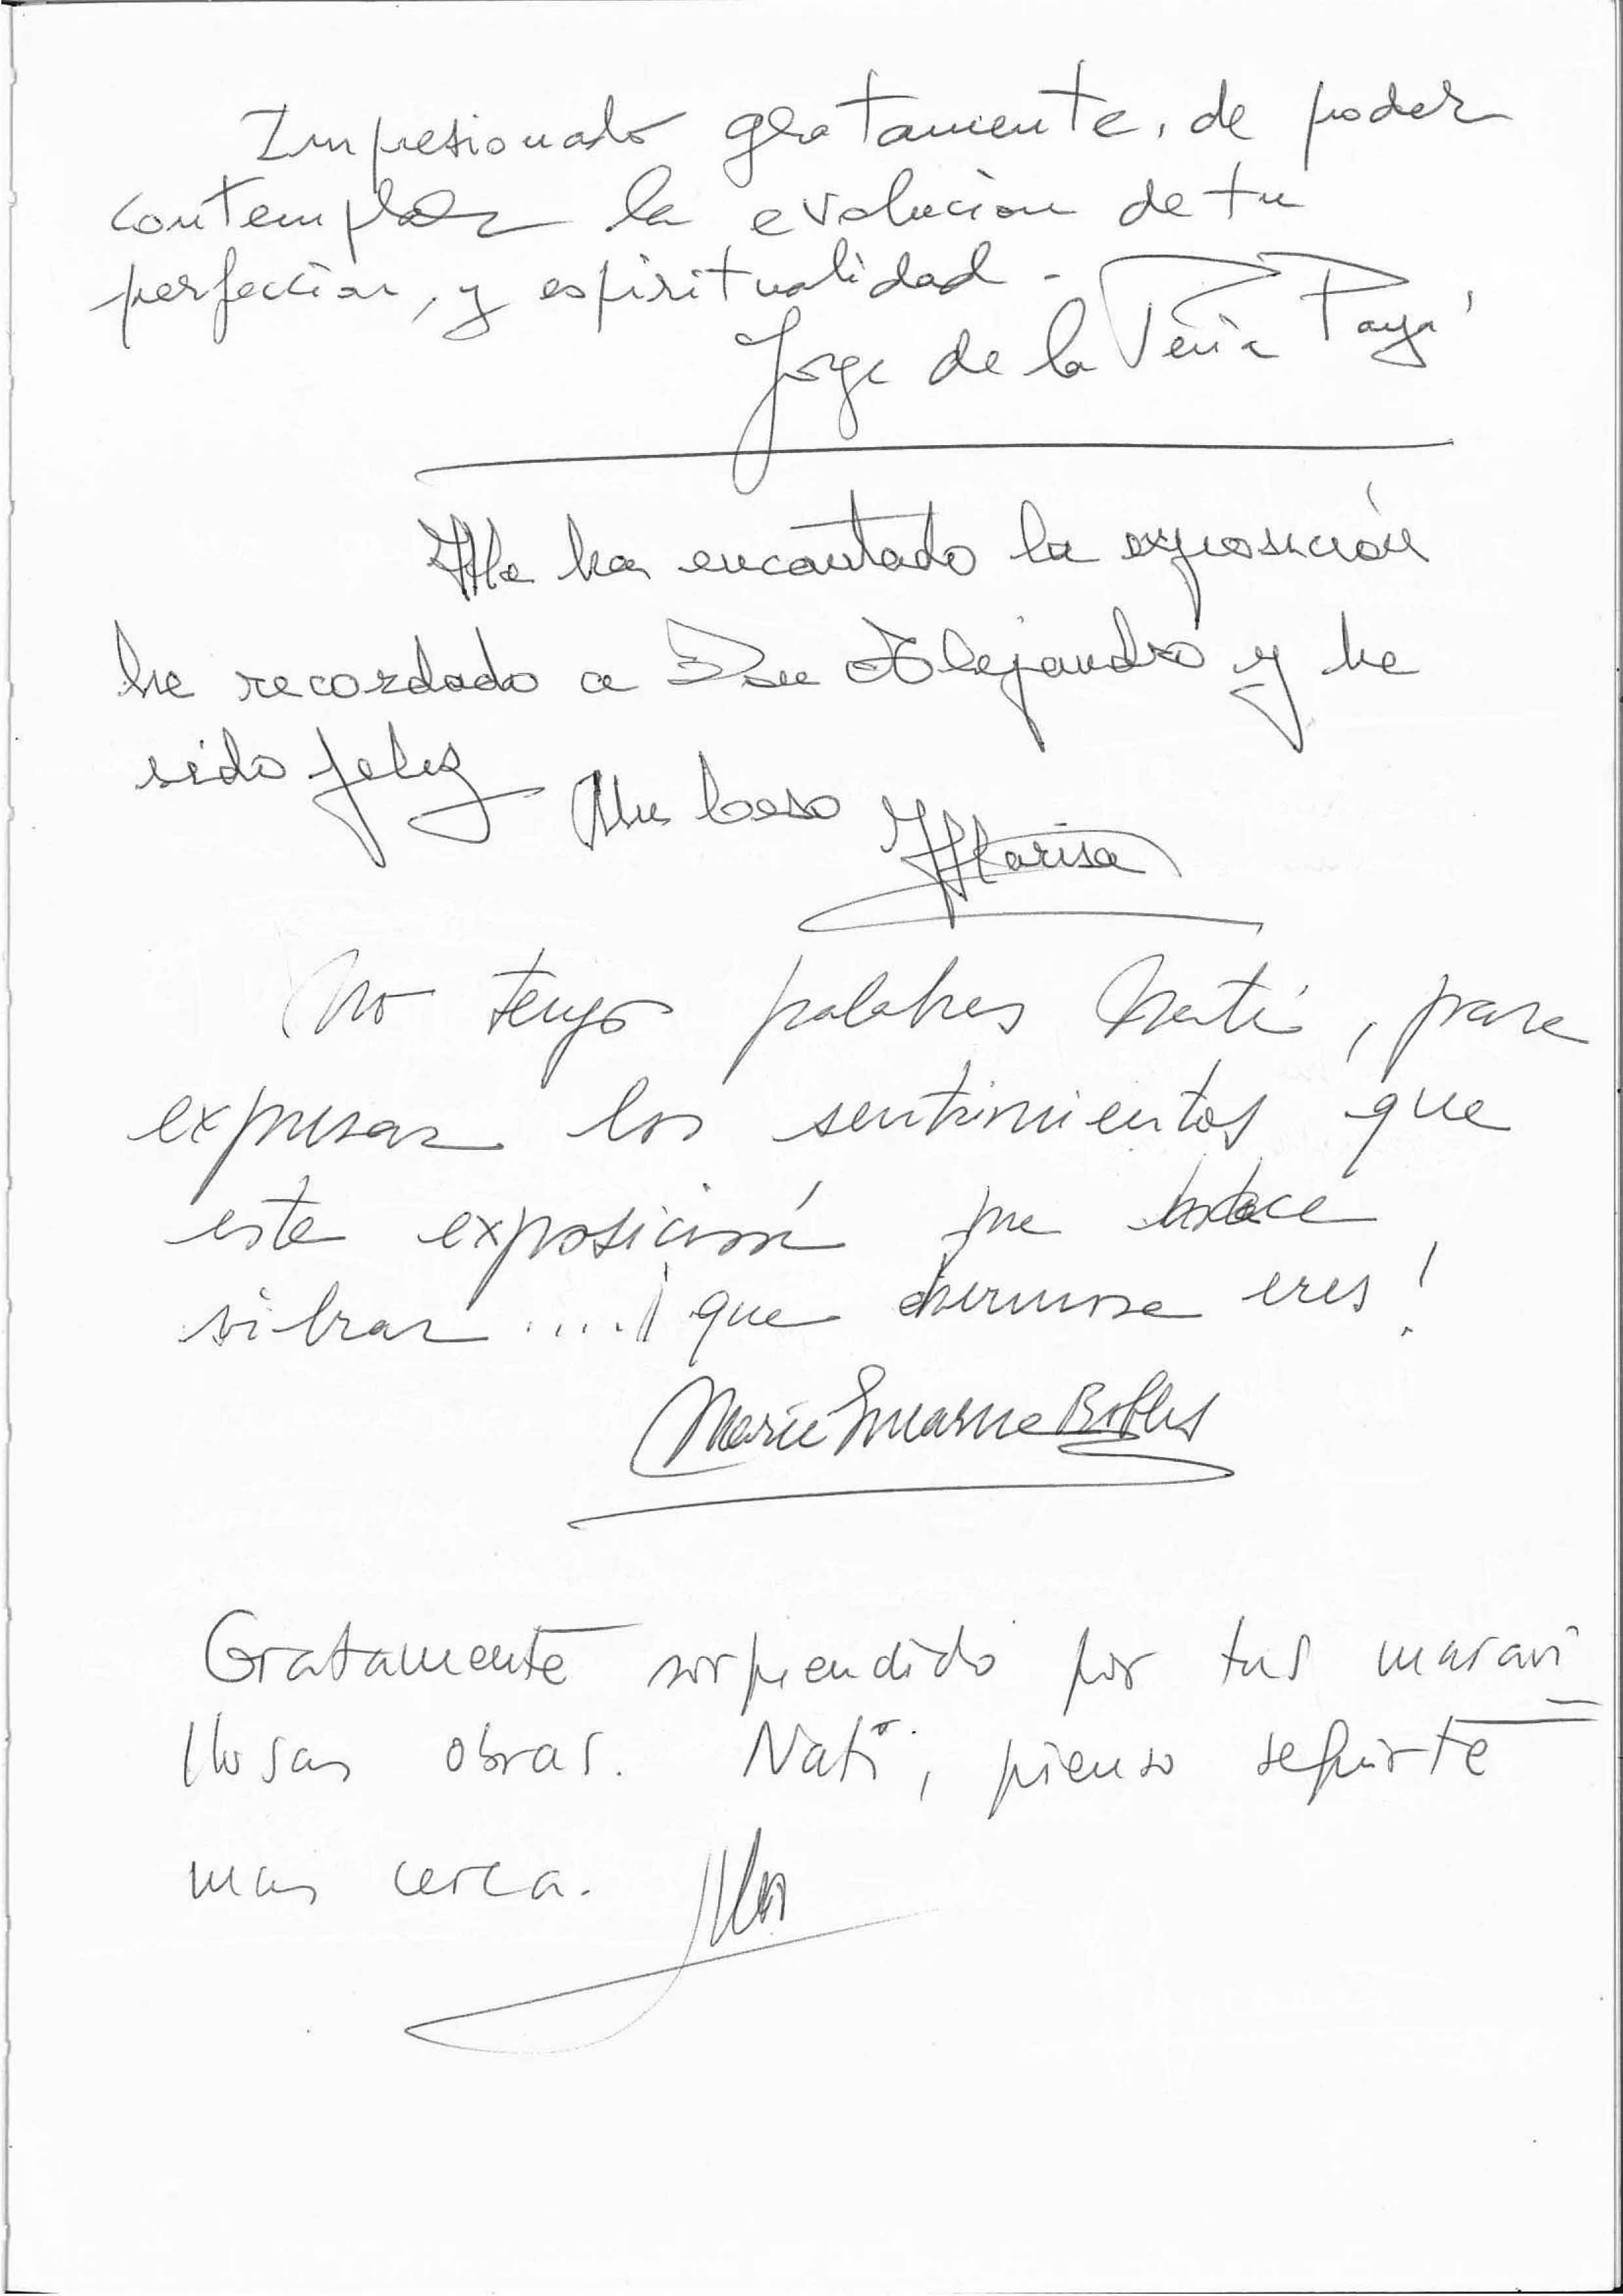 Impresionado gratamente, de poder
contemplar la evolucion de tu
perfeccion, y espiritualidad -
Jorge de la Peña Payá
Me ha encantado la exposición
he recordado a Don Alejandro y he
sido feliz
Un beso Marisa
No tengo palabras Nati, para
expresar los sentimientos que
esta exposición me hace
vibrar ....¡ que hermosa eres!
Marie Robles
Gratamente sorprendido por tus maravi
llosas obras. Nati, pienso seguirte
mas cerca.